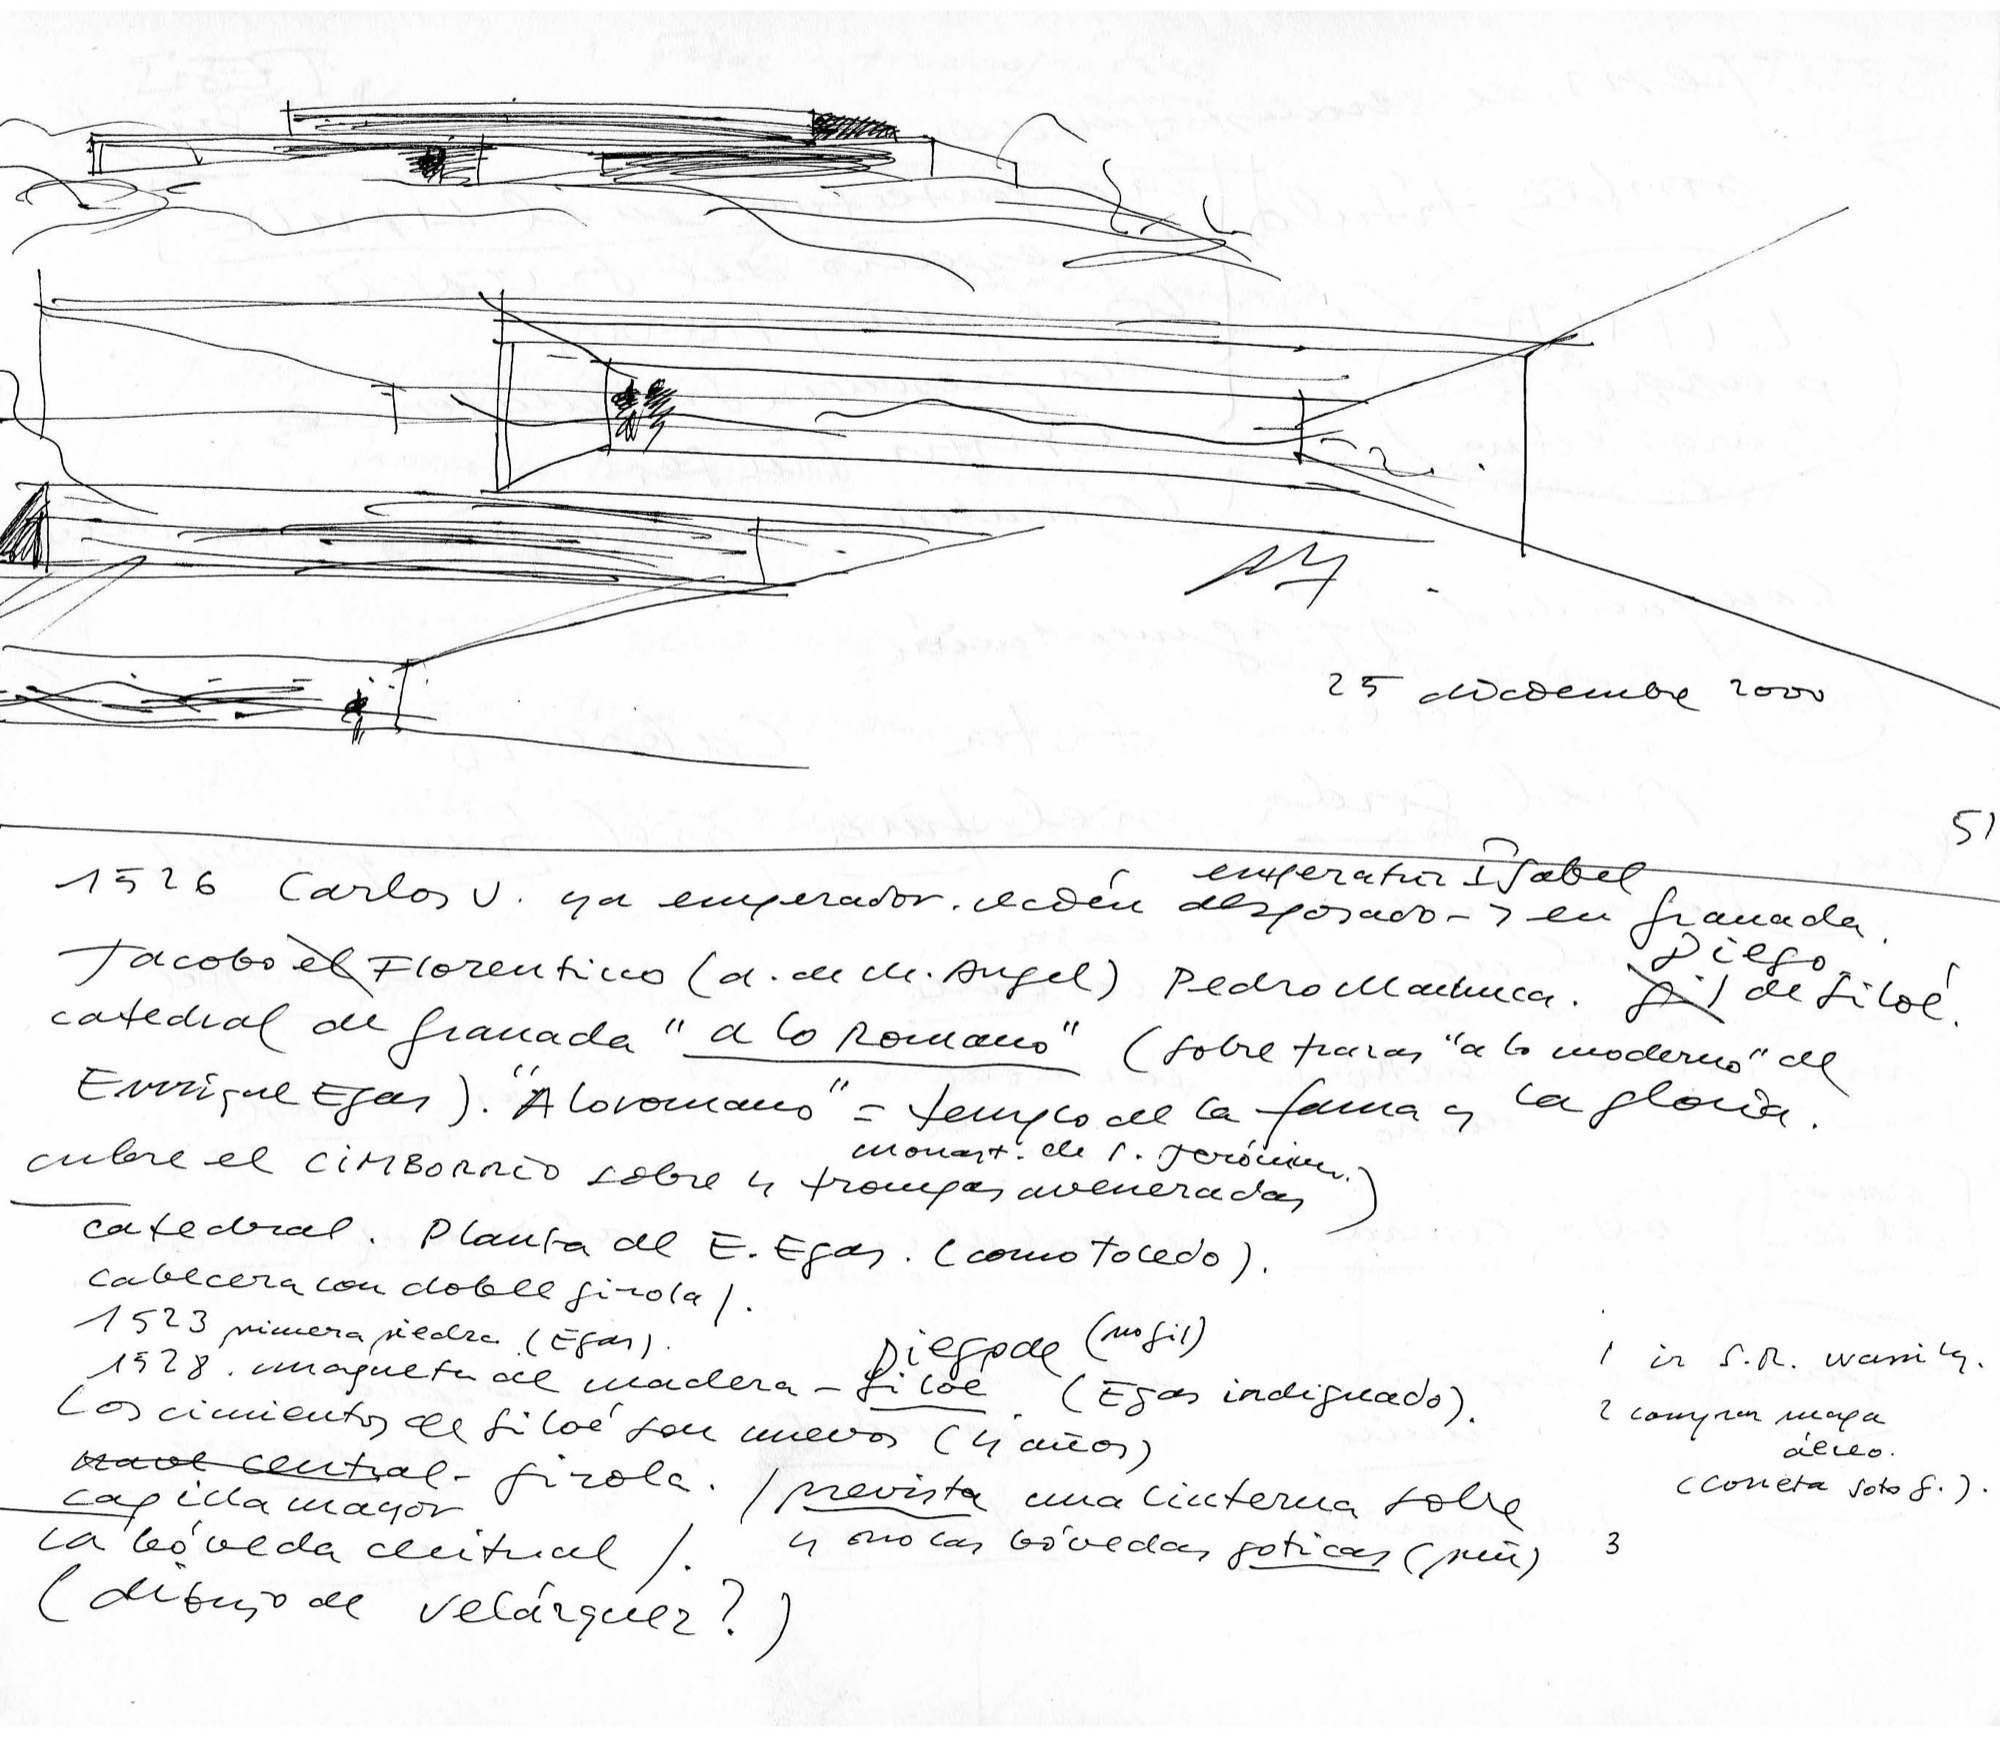 25 diciembre 2000
51
emperatriz Isabel
1526 Carlos V. ya emperador. recién desposado -> en Granada.
Diego
Jacobo el Florentino (a. de M. Angel) Pedro Machuca. Gil de Siloé.
catedral de Granada "a lo Romano" (sobre trazas "a lo moderno" de
Enrique Egas). "A lo romano" = templo de la fama y la gloria.
monast. de S. Jerónimo.)
cubre el CIMBORRIO sobre 4 trompas aveneradas
catedral. Planta de E. Egas. (como Toledo).
cabecera con doble girola/.
1523 primera piedra (Egas).
Diego de (no gil)
1528. maqueta de madera - Siloé. (Egas indignado).
Los cimientos de Siloé son nuevos (4 años)
nave central - girola. / prevista una linterna sobre
capilla mayor
la bóveda central /. y no las bóvedas goticas
(dibujo de Velázquez?)
1 ir S.R.
2 comprar mapa
aéreo.
(Soto G.).
3